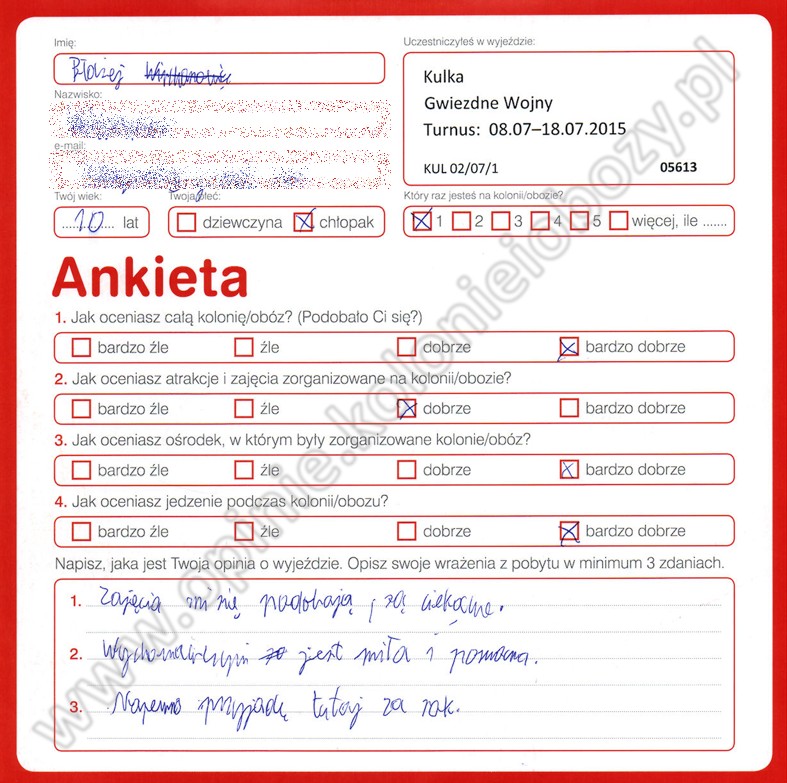 Imię:
Błażej
Nazwisko:
e-mail:
Twój wiek:
10 lat
Twoja płeć:
dziewczyna chłopak
Uczestniczyłeś w wyjeździe:
Kulka
Gwiezdne Wojny
Turnus: 08.07–18.07.2015
KUL 02/07/1 05613
Który raz jesteś na kolonii/obozie?
1 2 3 4 5 więcej, ile .......
Ankieta
1. Jak oceniasz całą kolonię/obóz? (Podobało Ci się?)
bardzo źle źle dobrze bardzo dobrze
2. Jak oceniasz atrakcje i zajęcia zorganizowane na kolonii/obozie?
bardzo źle źle dobrze bardzo dobrze
3. Jak oceniasz ośrodek, w którym były zorganizowane kolonie/obóz?
bardzo źle źle dobrze bardzo dobrze
4. Jak oceniasz jedzenie podczas kolonii/obozu?
bardzo źle źle dobrze bardzo dobrze
Napisz, jaka jest Twoja opinia o wyjeździe. Opisz swoje wrażenia z pobytu w minimum 3 zdaniach.
1. Zajęcia mi się podobają, są ciekawe.
2. Wychowawczyni jest miła i pomocna.
3. Napewno przyjadę tutaj za rok.
www.opinie.kolonieiobozy.pl